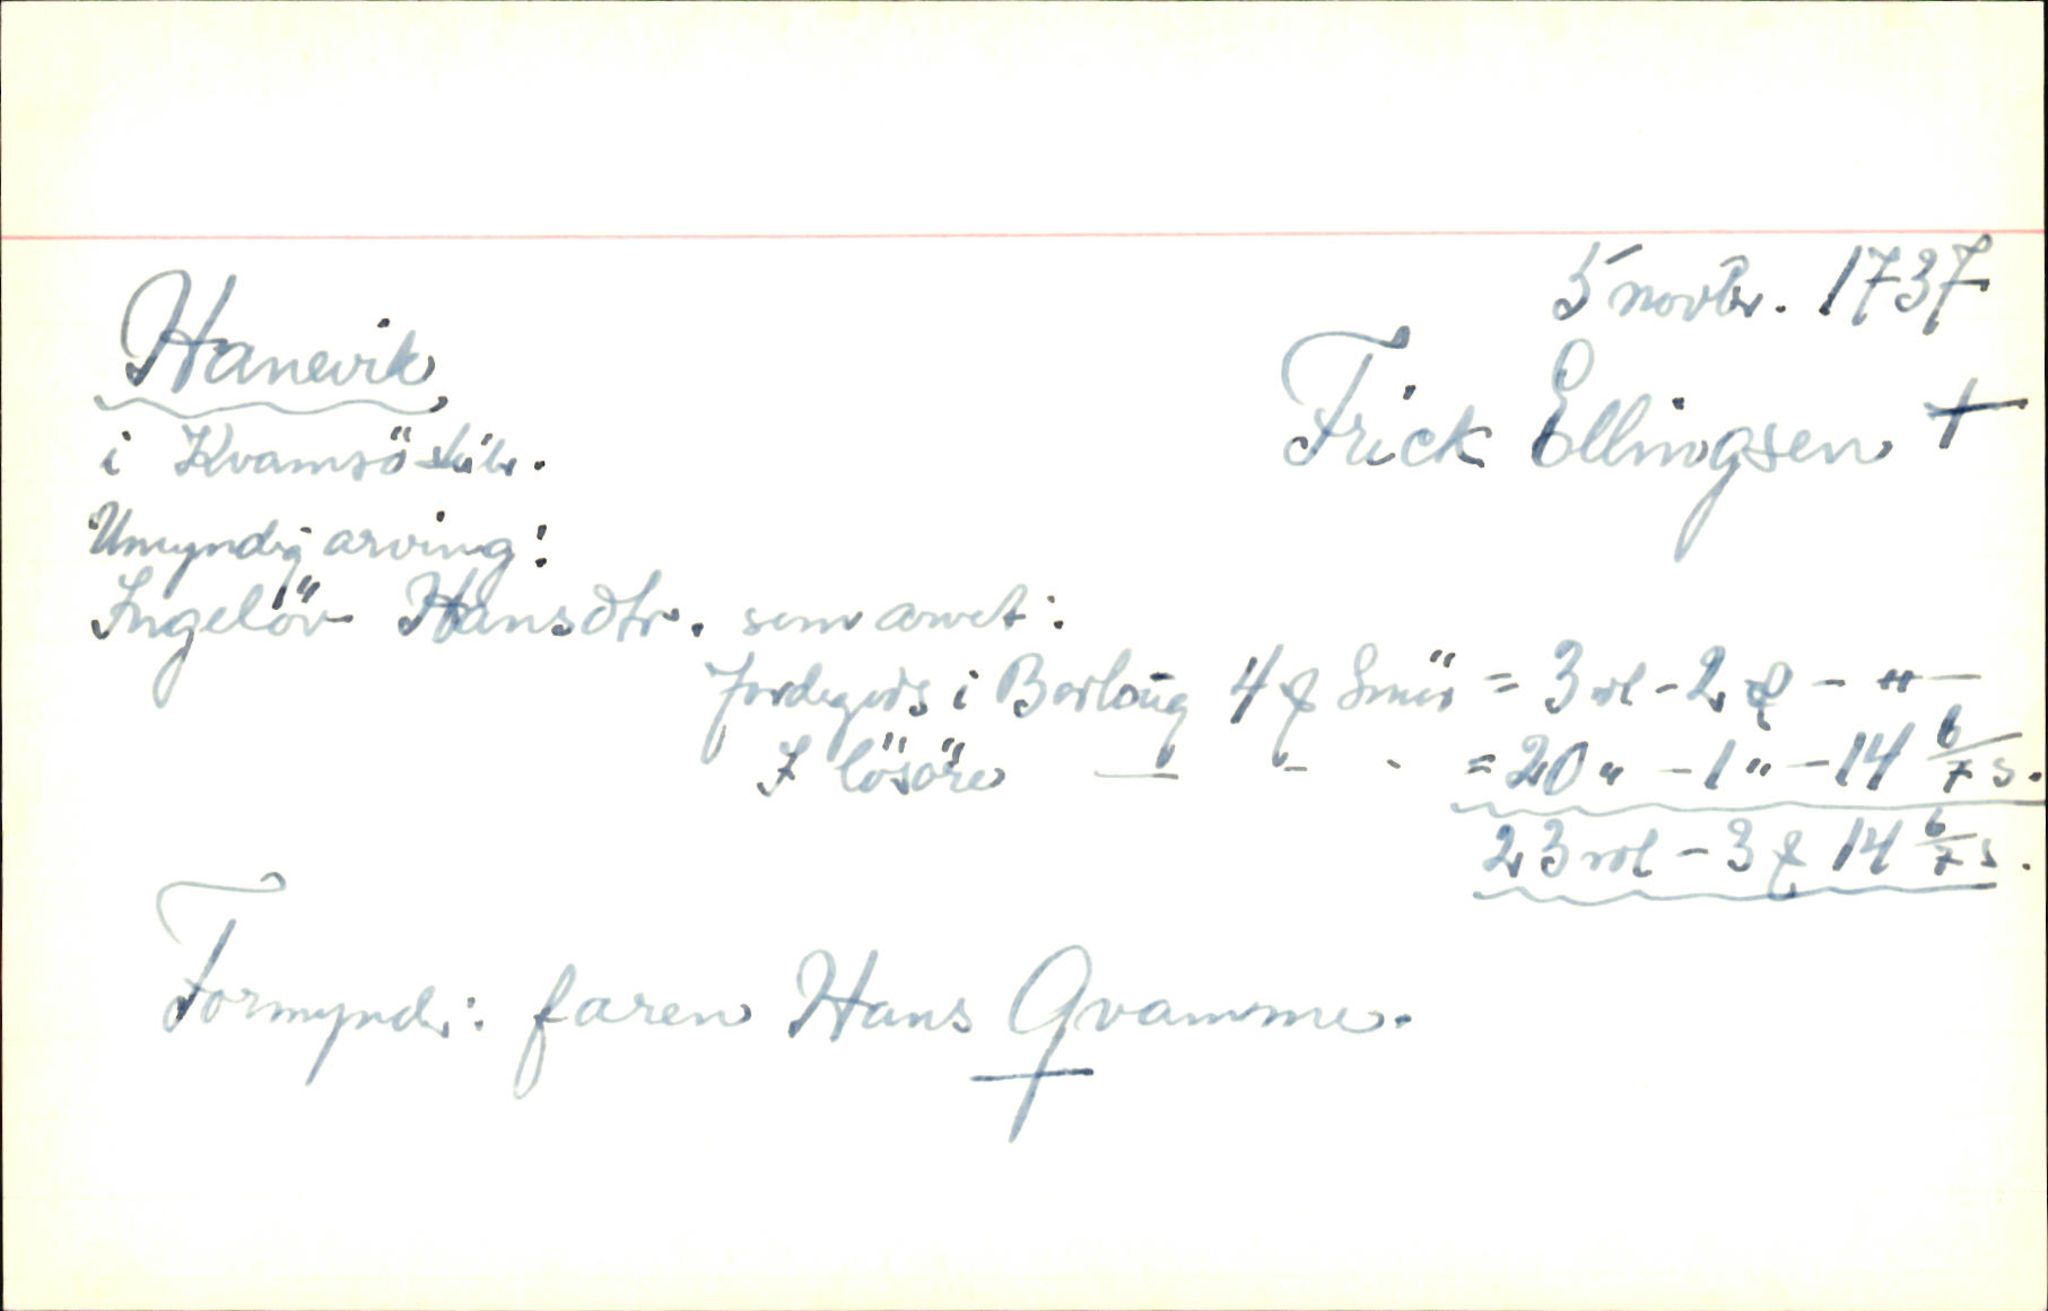 5 novbr. 1737
Hanevik
Frick Ellingsen +
i Kvamsö skibr.
Umyndig arving:
Ingelöv Hansdtr. som arvet:
Jordegods i Borlaug 4 Smör = 3 rdl - 2 - " -
I lösöre — - - = 20 " - 1 " - 14 6/7 s.
23 rdl - 3 14 6/7 s.
Formynd.: faren Hans Qvamme.